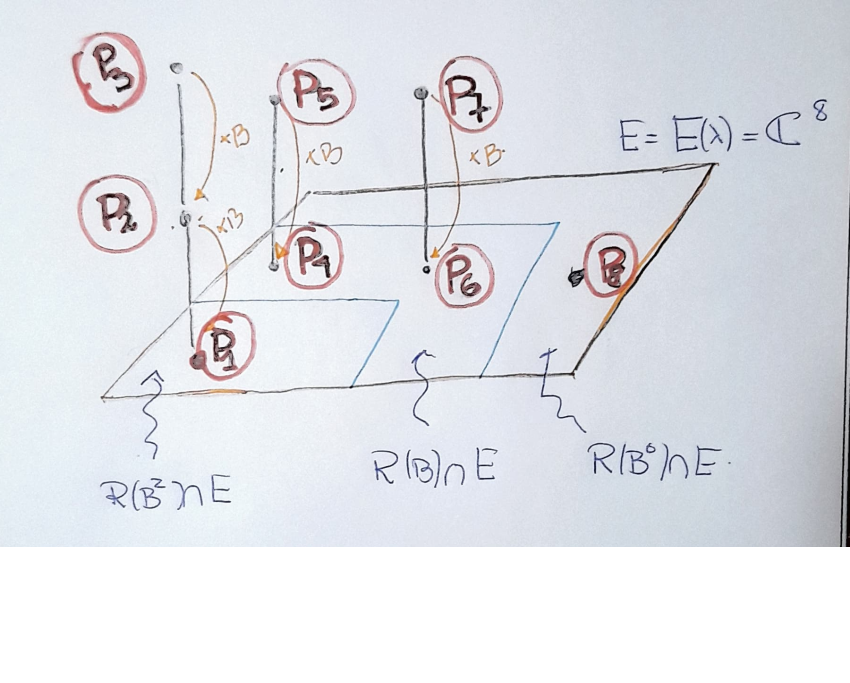 P3
P5
P7
E = E(λ) = ℂ⁸
×B
×B
×B
P2
×B
P4
P6
P8
P1
R(B²)∩E
R(B)∩E
R(B⁰)∩E.